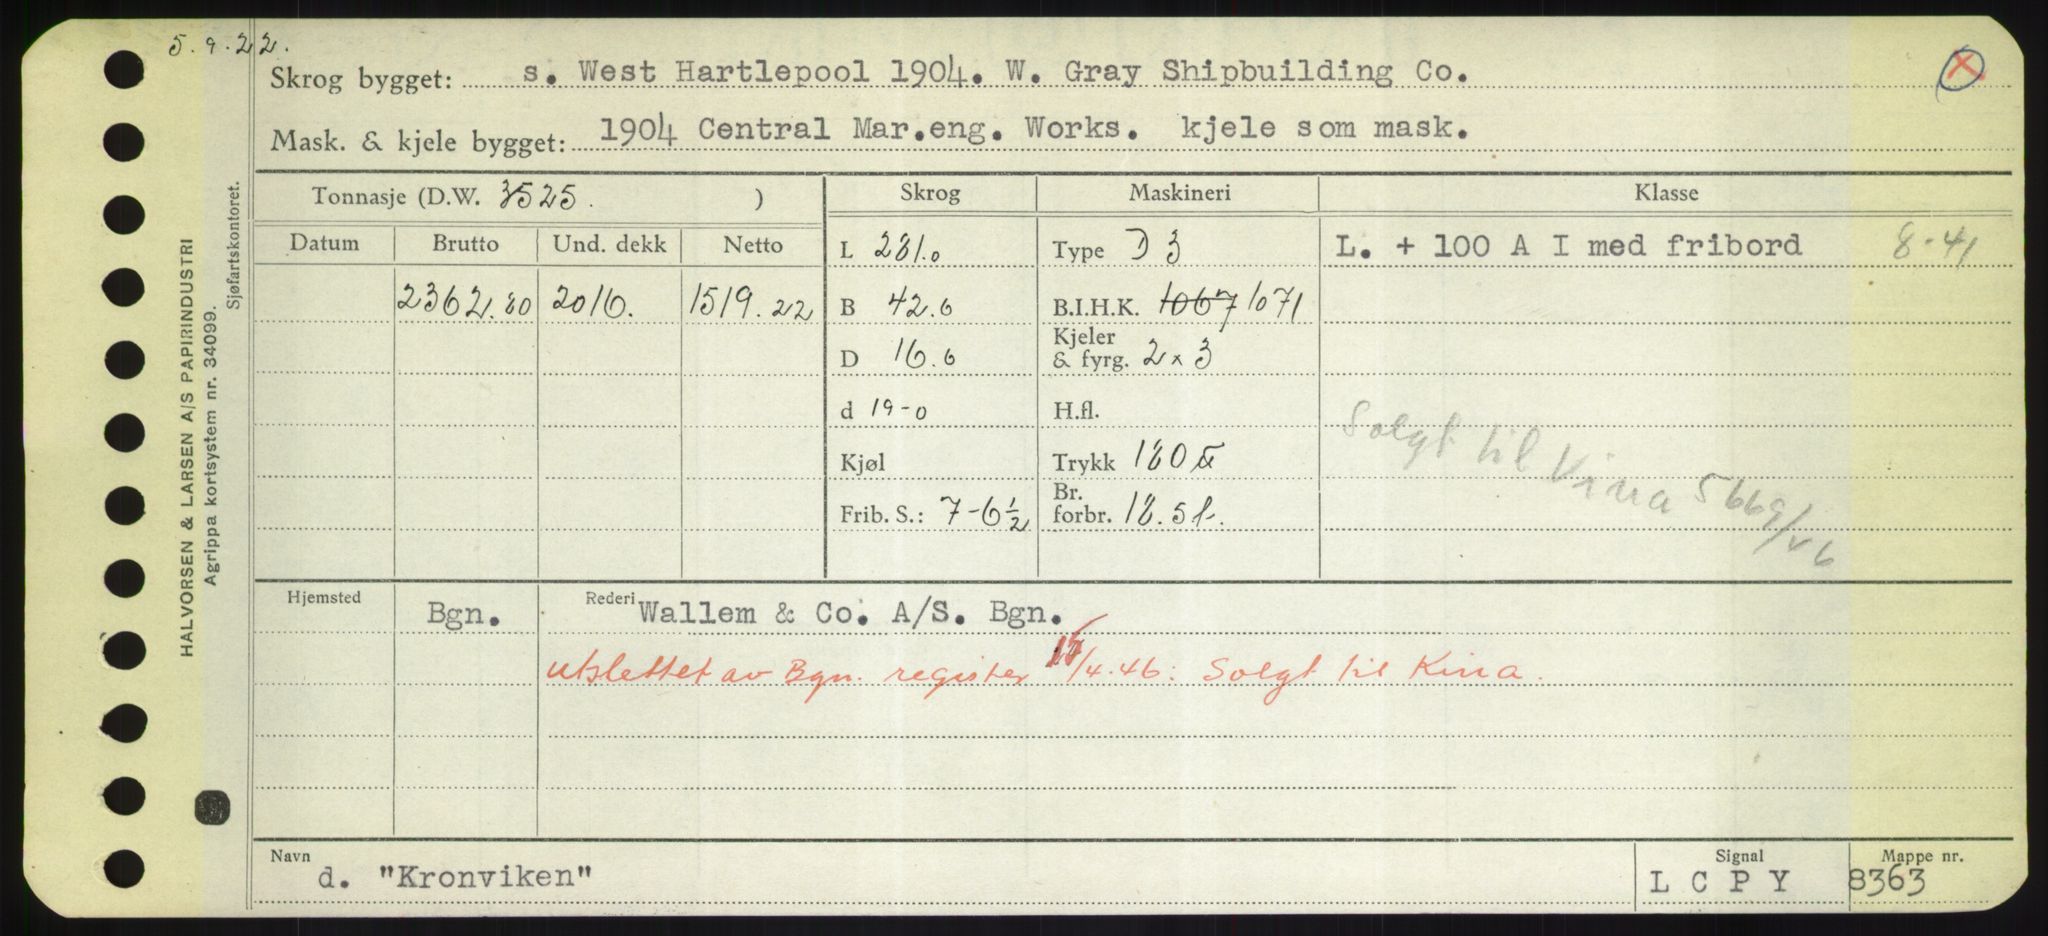 5.9.22.
Skrog bygget: s. West Hartlepool 1904. W. Gray Shipbuilding Co. X
Mask. & kjele bygget: 1904 Central Mar.eng. Works. kjele som mask.
Tonnasje (D.W. 3525. ) Skrog Maskineri Klasse
Datum Brutto Und. dekk Netto L 281.0 Type D 3 L. + 100 A I med fribord 8-41
2362.80 2016. 1519.22 B 42.6 B.I.H.K. 1067 1071
D 16.6 Kjeler & fyrg. 2 x 3
d 19-0 H.fl.
Kjøl Trykk 180
Frib. S.: 7-6½ Br. forbr. 18.5 t.
Solgt til Kina 5669/46
Hjemsted Bgn. Rederi Wallem & Co. A/S. Bgn.
utslettet av Bgn. register /4.46: Solgt til Kina.
Navn d. "Kronviken" Signal L C P Y Mappe nr. 8363
HALVORSEN & LARSEN A/S PAPIRINDUSTRI
Agrippa kortsystem nr. 34099.
Sjøfartskontoret.